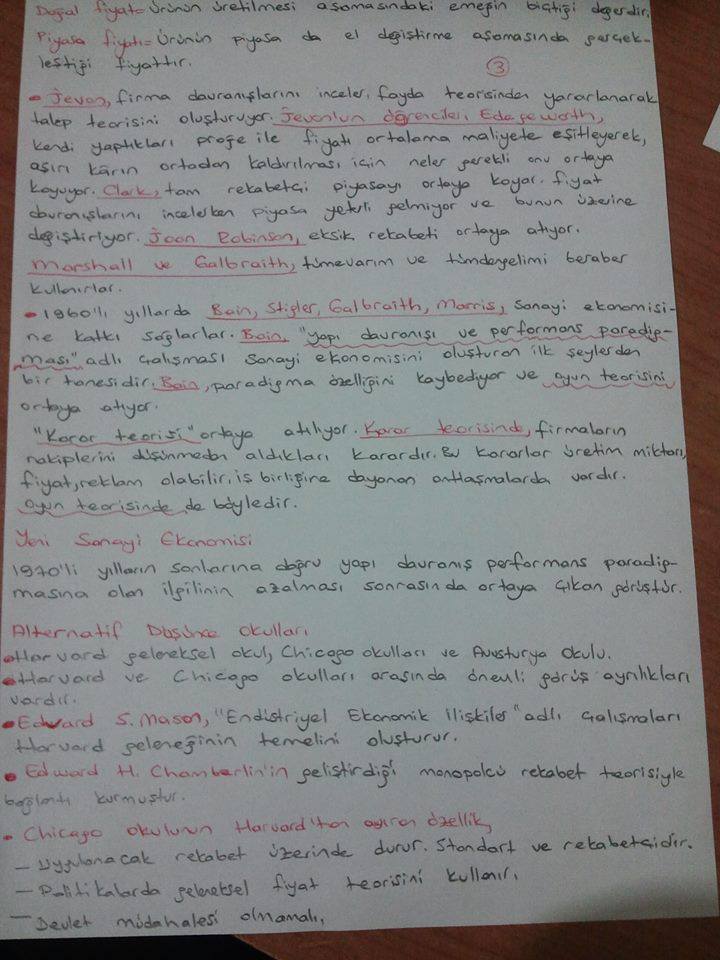 Doğal fiyat= Ürünün üretilmesi aşamasındaki emeğin biçtiği değerdir.
Piyasa fiyatı= Ürünün piyasa da el değiştirme aşamasında gerçek-
leştiği fiyattır.
3
• Jevon, firma davranışlarını inceler, fayda teorisinden yararlanarak
talep teorisini oluşturuyor. Jevonlun öğrencileri Edegeworth,
kendi yaptıkları proğe ile fiyatı ortalama maliyete eşitleyerek,
aşırı kârın ortadan kaldırılması için neler gerekli onu ortaya
koyuyor. Clark, tam rekabetçi piyasayı ortaya koyar. fiyat
davranışlarını incelerken piyasa yeterli gelmiyor ve bunun üzerine
değiştiriyor. Joan Robinson, eksik rekabeti ortaya atıyor.
Marshall ve Galbraith, tümevarım ve tümdengelimi beraber
kullanırlar.
• 1960'lı yıllarda Bain, Stigler, Galbraith, Marris, Sanayi ekonomisi-
ne katkı sağlarlar. Bain, "yapı davranışı ve performans paradig-
ması" adlı çalışması sanayi ekonomisini oluşturan ilk şeylerden
bir tanesidir. Bain, paradigma özelliğini kaybediyor ve oyun teorisini
ortaya atıyor.
"Karar teorisi" ortaya atılıyor. Karar teorisinde, firmaların
rakiplerini düşünmeden aldıkları karardır. Bu kararlar üretim miktarı,
fiyat, reklam olabilir, iş birliğine dayanan antlaşmalarda vardır.
Oyun teorisinde de böyledir.
Yeni Sanayi Ekonomisi
1970'li yılların sonlarına doğru yapı davranış performans paradig-
masına olan ilgilinin azalması sonrasında ortaya çıkan görüştür.
Alternatif Düşünce Okulları
• Harvard geleneksel okul, Chicago okulları ve Avusturya Okulu.
• Harvard ve Chicago okulları arasında önemli görüş ayrılıkları
vardır.
• Edward S. Mason, "Endistriyel Ekonomik ilişkiler" adlı çalışmaları
Harvard geleneğinin temelini oluşturur.
• Edward H. Chamberlin'in geliştirdiği monopolcü rekabet teorisiyle
bağlantı kurmuştur.
• Chicago okulunun Harvard'tan ayıran özellik,
— Uygulanacak rekabet üzerinde durur. Standart ve rekabetçidir.
— Politikalarda geleneksel fiyat teorisini kullanır.
— Devlet müdahalesi olmamalı,